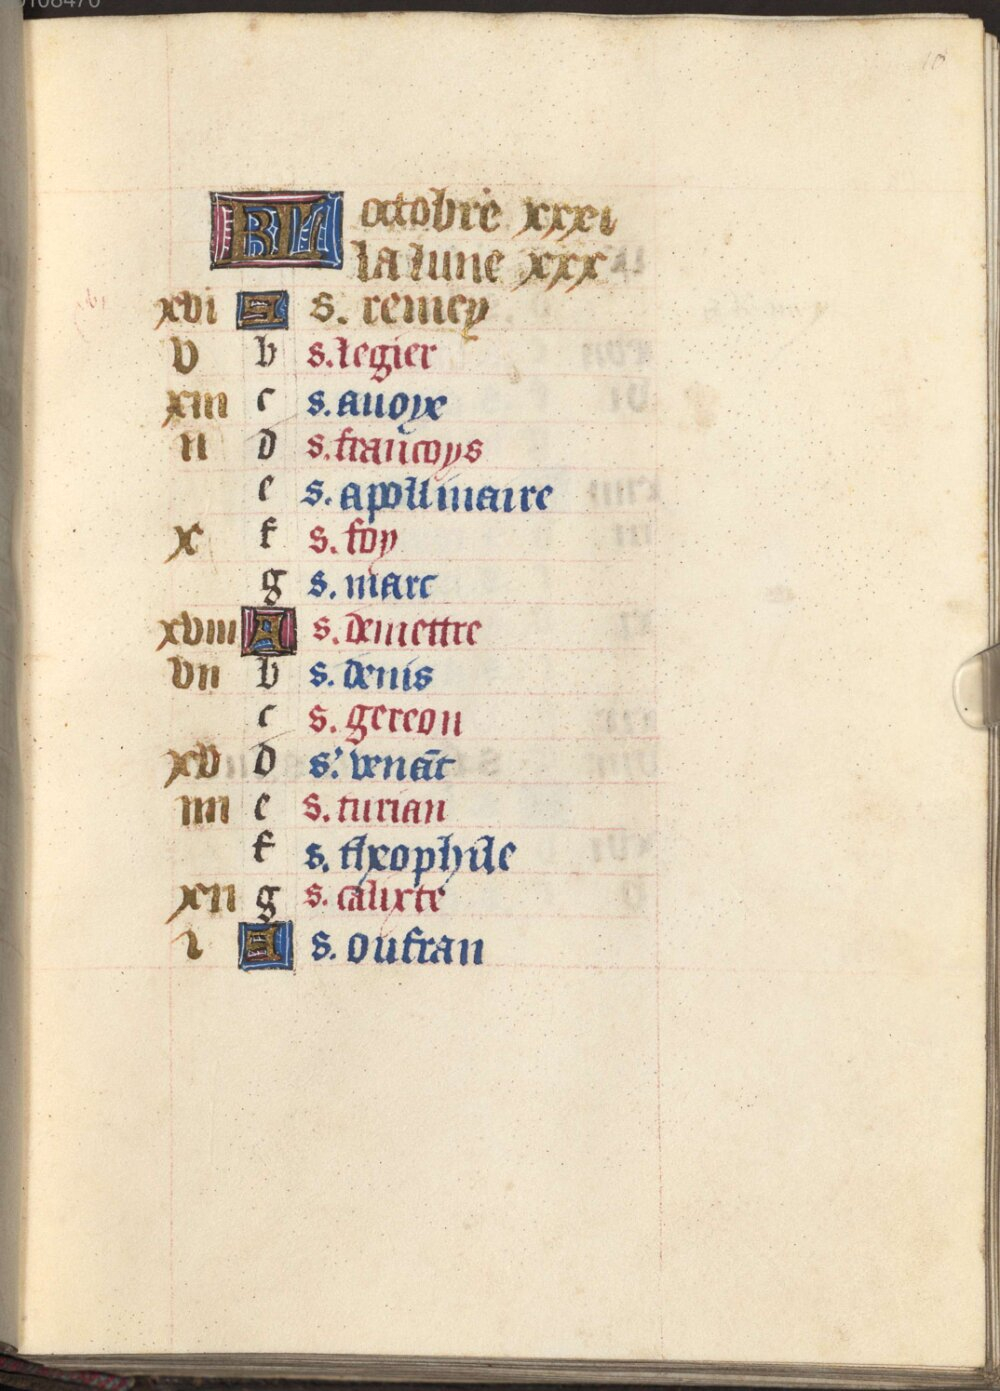 10
KL octobre xxxi
la lune xxx
xvi A s. remey
v b s. legier
xiii c s. auoye
ii d s. francoys
e s. apollinaire
x f s. foy
g s. marc
xviii A s. demettre
vii b s. denis
c s. gereon
xv d s. venāt
iiii e s. turian
f s. theophile
xii g s. calixte
i A s. oufran